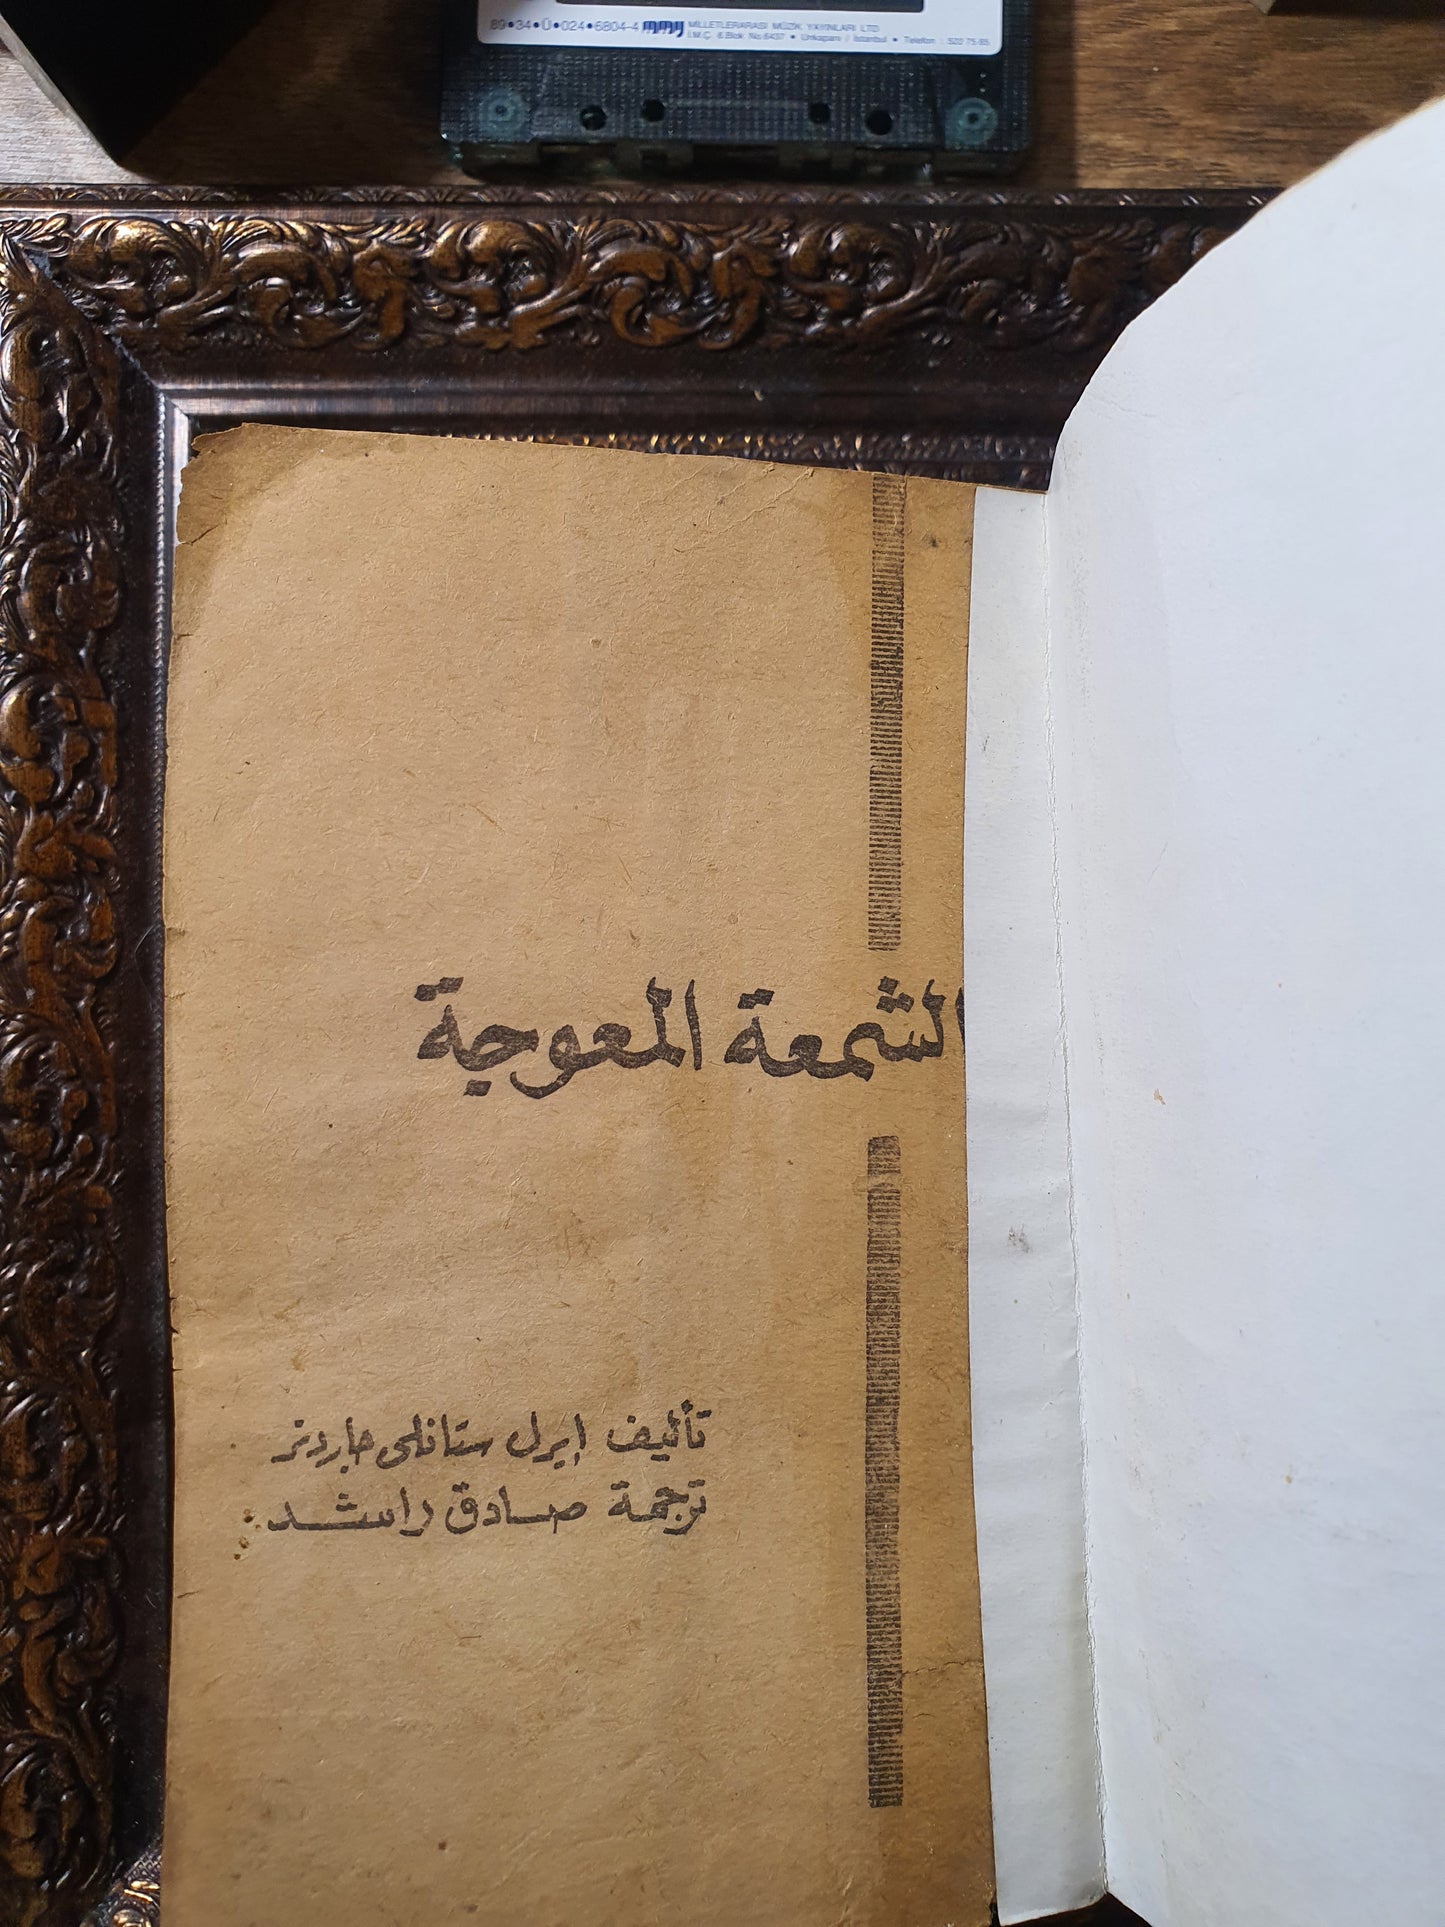 89•34•Ü•024•6804-4 mmy MİLLETLERARASI MÜZİK YAYINLARI LTD
İ.M.Ç. 6.Blok No:6437 • Unkapanı / İstanbul • Telefon : 520 75 85
الشمعة المعوجية
تأليف ايرل ستانلى جاردنر
ترجمة صادق راشد